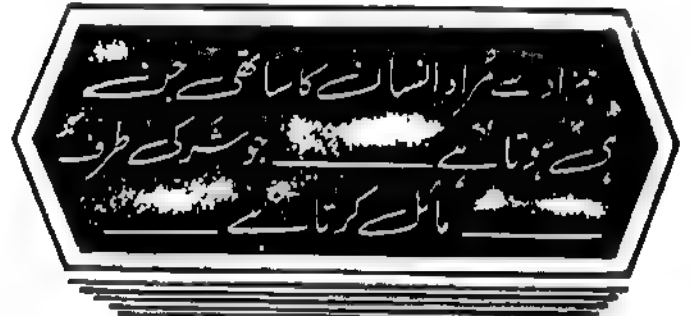 ہمزاد سے مُراد انسان کا ساتھی جن
ہی ہوتا ہے جو شر کی طرف
مائل کرتا ہے